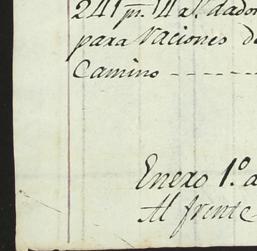 241 ps. 14 rs. dados
para Raciones de
Camino - - - - -
Enero 1.º a
Al frente